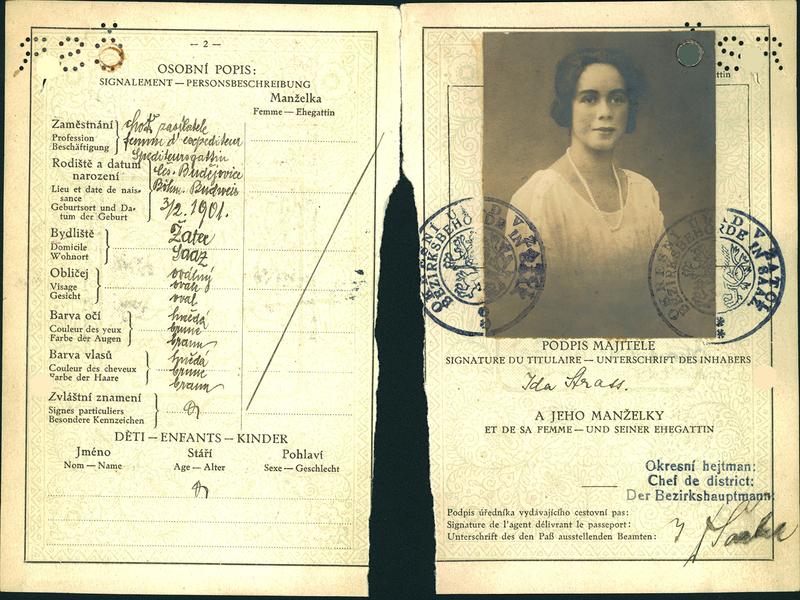 — 2 —
OSOBNÍ POPIS:
SIGNALEMENT — PERSONSBESCHREIBUNG
Manželka
Femme — Ehegattin
Zaměstnání
Profession
Beschäftigung
choť zasilatele
femme d'expéditeur
Spediteursgattin
Rodiště a datum
narození
Lieu et date de nais-
sance
Geburtsort und Da-
tum der Geburt
Čes. Budějovice
Böhm. Budweis
3/2. 1901.
Bydliště
Domicile
Wohnort
Žatec
Saaz
Obličej
Visage
Gesicht
ovální
ovale
oval
Barva očí
Couleur des yeux
Farbe der Augen
hnědá
brune
braun
Barva vlasů
Couleur des cheveux
Farbe der Haare
hnědá
brune
braun
Zvláštní znamení
Signes particuliers
Besondere Kennzeichen
DĚTI — ENFANTS — KINDER
Jméno Stáří Pohlaví
Nom — Name Age — Alter Sexe — Geschlecht
OKRESNÍ ÚŘAD V ŽATCI
BEZIRKSBEHÖRDE IN SAAZ
OKRESNÍ ÚŘAD V ŽATCI
BEZIRKSBEHÖRDE IN SAAZ
PODPIS MAJITELE
SIGNATURE DU TITULAIRE — UNTERSCHRIFT DES INHABERS
Ida Strass.
A JEHO MANŽELKY
ET DE SA FEMME — UND SEINER EHEGATTIN
Okresní hejtman:
Chef de district:
Der Bezirkshauptmann:
Podpis úředníka vydávajícího cestovní pas:
Signature de l'agent délivrant le passeport:
Unterschrift des den Paß ausstellenden Beamten: